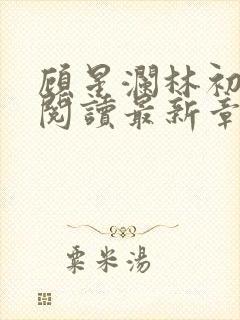 顧星瀾林初
閱讀最新章
粟米湯